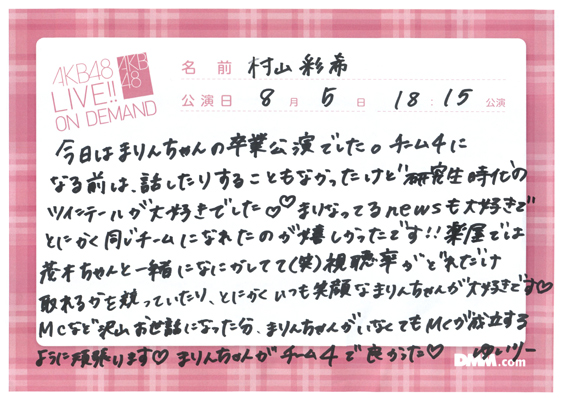 AKB48
LIVE!!
ON DEMAND
AKB
48
名前 村山彩希
公演日 8月5日 18:15公演
今日はまりんちゃんの卒業公演でした。チーム4に
なる前は、話したりすることもなかったけど研究生時代の
ツインテールが大好きでした♡♡まりなってるnewsも大好きで
とにかく同じチームになれたのが嬉しかったです!!楽屋では
茂木ちゃんと一緒になにかしてて(笑)視聴率がどれだけ
取れるかを競っていたり、とにかくいつも笑顔なまりんちゃんが大好きです♡
MCなど沢山お世話になった分、まりんちゃんがいなくてもMCが成立する
ように頑張ります♡ まりんちゃんがチーム4で良かった♡ ゆいりー
DMM.com